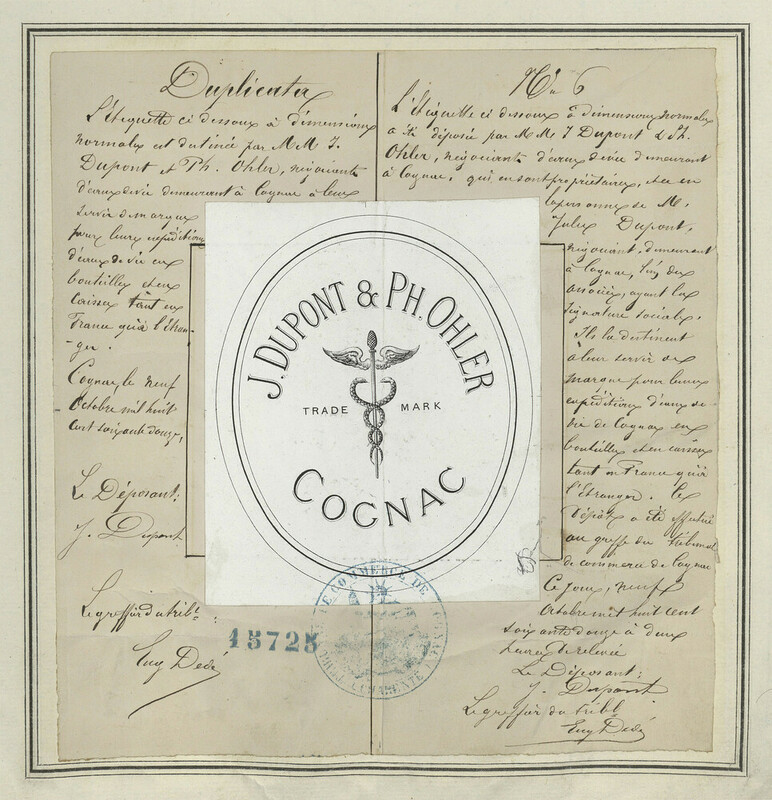 Duplicata
L'Etiquette ci dessous à dimensions
normales est destinée par MM J.
Dupont et Ph. Ohler, négociants
d'eaux de vie demeurant à Cognac à leur
servir de marque
pour leurs expéditions
d'eaux de vie en
bouteilles et en
caisses tant en
France qu'à l'étran-
-ger.
Cognac, le neuf
Octobre mil huit
cent soixante douze,
Le Déposant:
J. Dupont
Le greffier du tribl:
Eug Dedé
15725
No 6
L'Etiquette ci dessous à dimensions normales
a été déposée par MM J Dupont & Ph.
Ohler, négociants d'eaux de vie demeurant
à Cognac, qui en sont propriétaires, et en
la personne de M.
Jules Dupont,
négociant, demeurant
à Cognac, l'un des
associés, ayant la
signature sociale.
Ils la destinent
à leur servir de
marque pour leurs
expéditions d'eaux de
vie de Cognac en
bouteilles et en caisses
tant en France qu'à
l'Etranger. Le
Dépôt a été effectué
au greffe du tribunal
de commerce de Cognac
Ce jour, neuf
Octobre mil huit cent
soixante douze à deux
heures de relevée
Le Déposant:
J. Dupont
Le greffier du tribl
Eug Dedé
J. DUPONT & PH. OHLER
TRADE MARK
COGNAC
COMMERCE DE